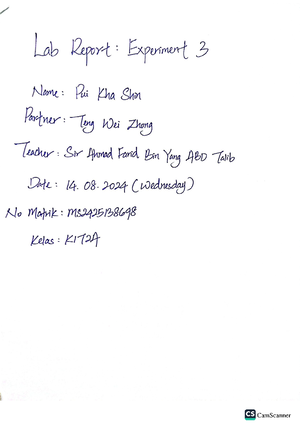 Lab Report : Experiment 3
Name : Pui Kha Shin
Partner : Teng Wei Zhong
Teacher : Sir Ahmad Farid Bin Yang ABD Talib
Date : 14.08.2024 (Wednesday)
No Matrik : MS2425138698
Kelas : K1T2A
CS CamScanner